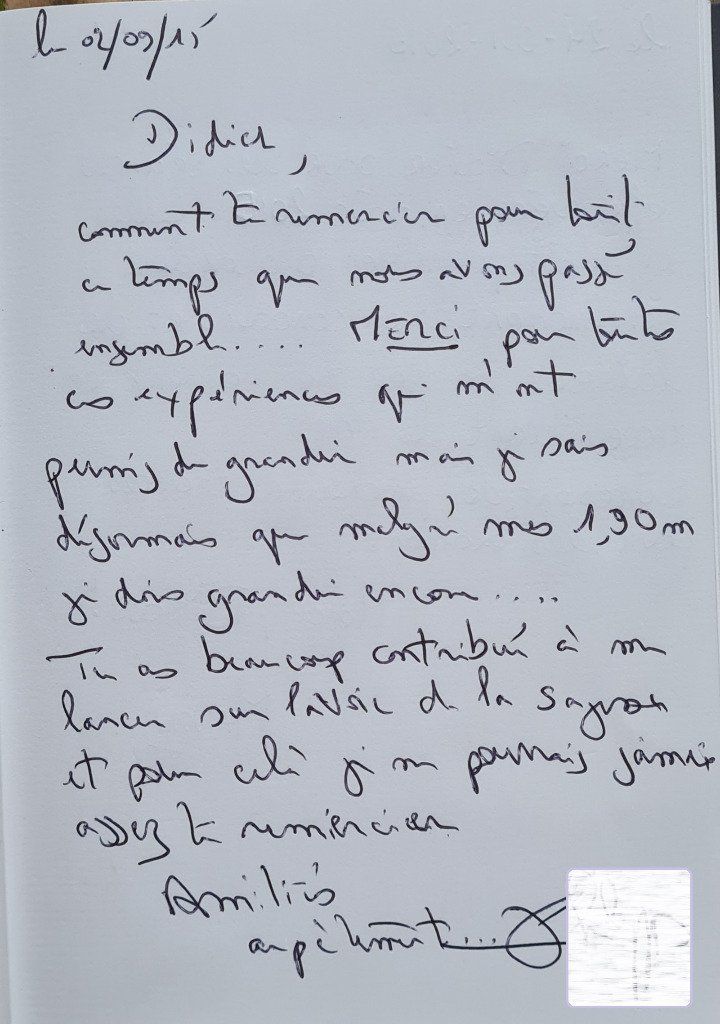 le 02/09/15
Didier,
comment te remercier pour tout
ce temps que nous avons passé
ensemble.... MERCI pour toutes
ces expériences qui m'ont
permis de grandir mais je sais
désormais que malgré mes 1,90m
je dois grandir encore....
Tu as beaucoup contribué à me
lancer sur la voie de la sagesse
et pour celà je ne pourrais jamais
assez te remercier
Amitiés
...